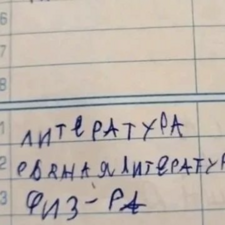 6
7
8
1 ЛИТЕРАТУРА
2 РОДНАЯ ЛИТЕРАТУР
3 ФИЗ-РА